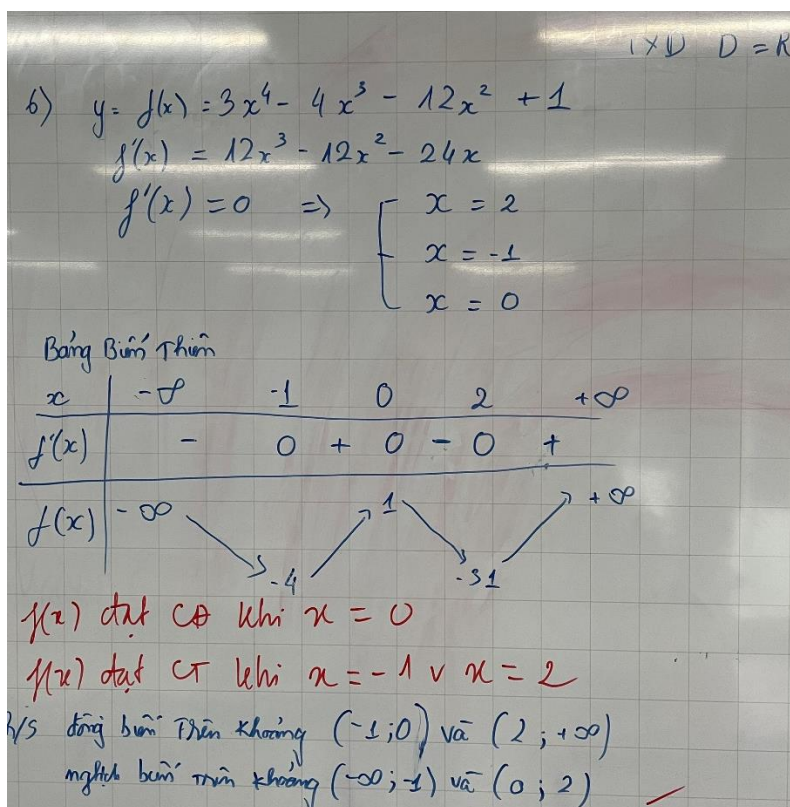 TXĐ D = R
6) y = f(x) = 3x⁴ - 4x³ - 12x² + 1
f'(x) = 12x³ - 12x² - 24x
f'(x) = 0 => [ x = 2
x = -1
x = 0
Bảng Biến Thiên
x | -∞ -1 0 2 +∞
f'(x) | - 0 + 0 - 0 +
f(x) | -∞ ↘ -4 ↗ 1 ↘ -31 ↗ +∞
f(x) đạt CĐ khi x = 0
f(x) đạt CT khi x = -1 v x = 2
h/s đồng biến Trên khoảng (-1;0) và (2;+∞)
nghịch biến trên khoảng (-∞;-1) và (0;2)